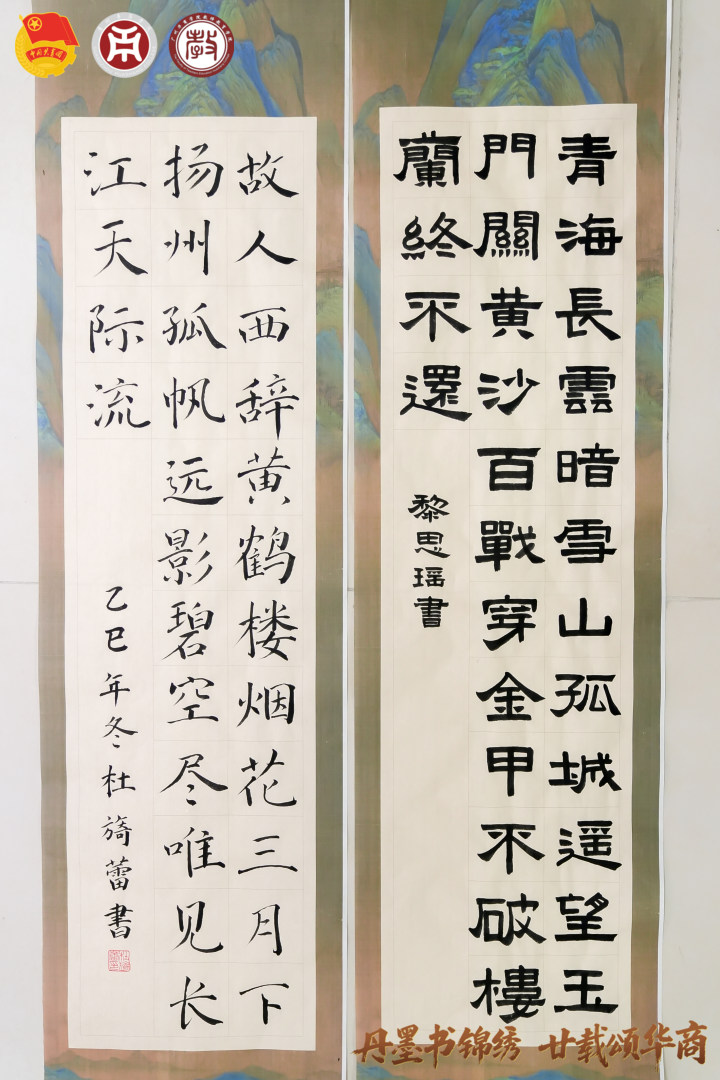 青海長雲暗雪山孤城遥望玉
門關黄沙百戰穿金甲不破樓
蘭終不還
黎思瑶書
故人西辞黄鹤楼烟花三月下
扬州孤帆远影碧空尽唯见长
江天际流
乙巳年冬杜旖蕾書
丹墨书锦绣 廿载颂华商